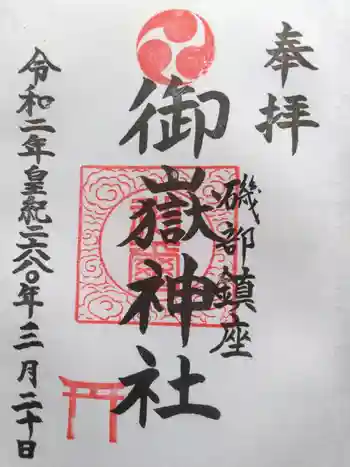 奉拝
磯部鎮座
御嶽神社
令和二年皇紀二六八〇年三月二十日